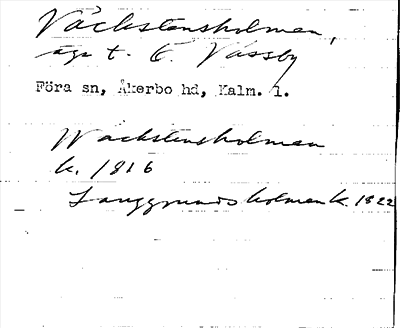 Väckstensholmen,
äga t. E. Vässby
Föra sn, Åkerbo hd, Kalm. l.
Wäckstensholmen
k. 1816
Langgrunds holmen k. 1822